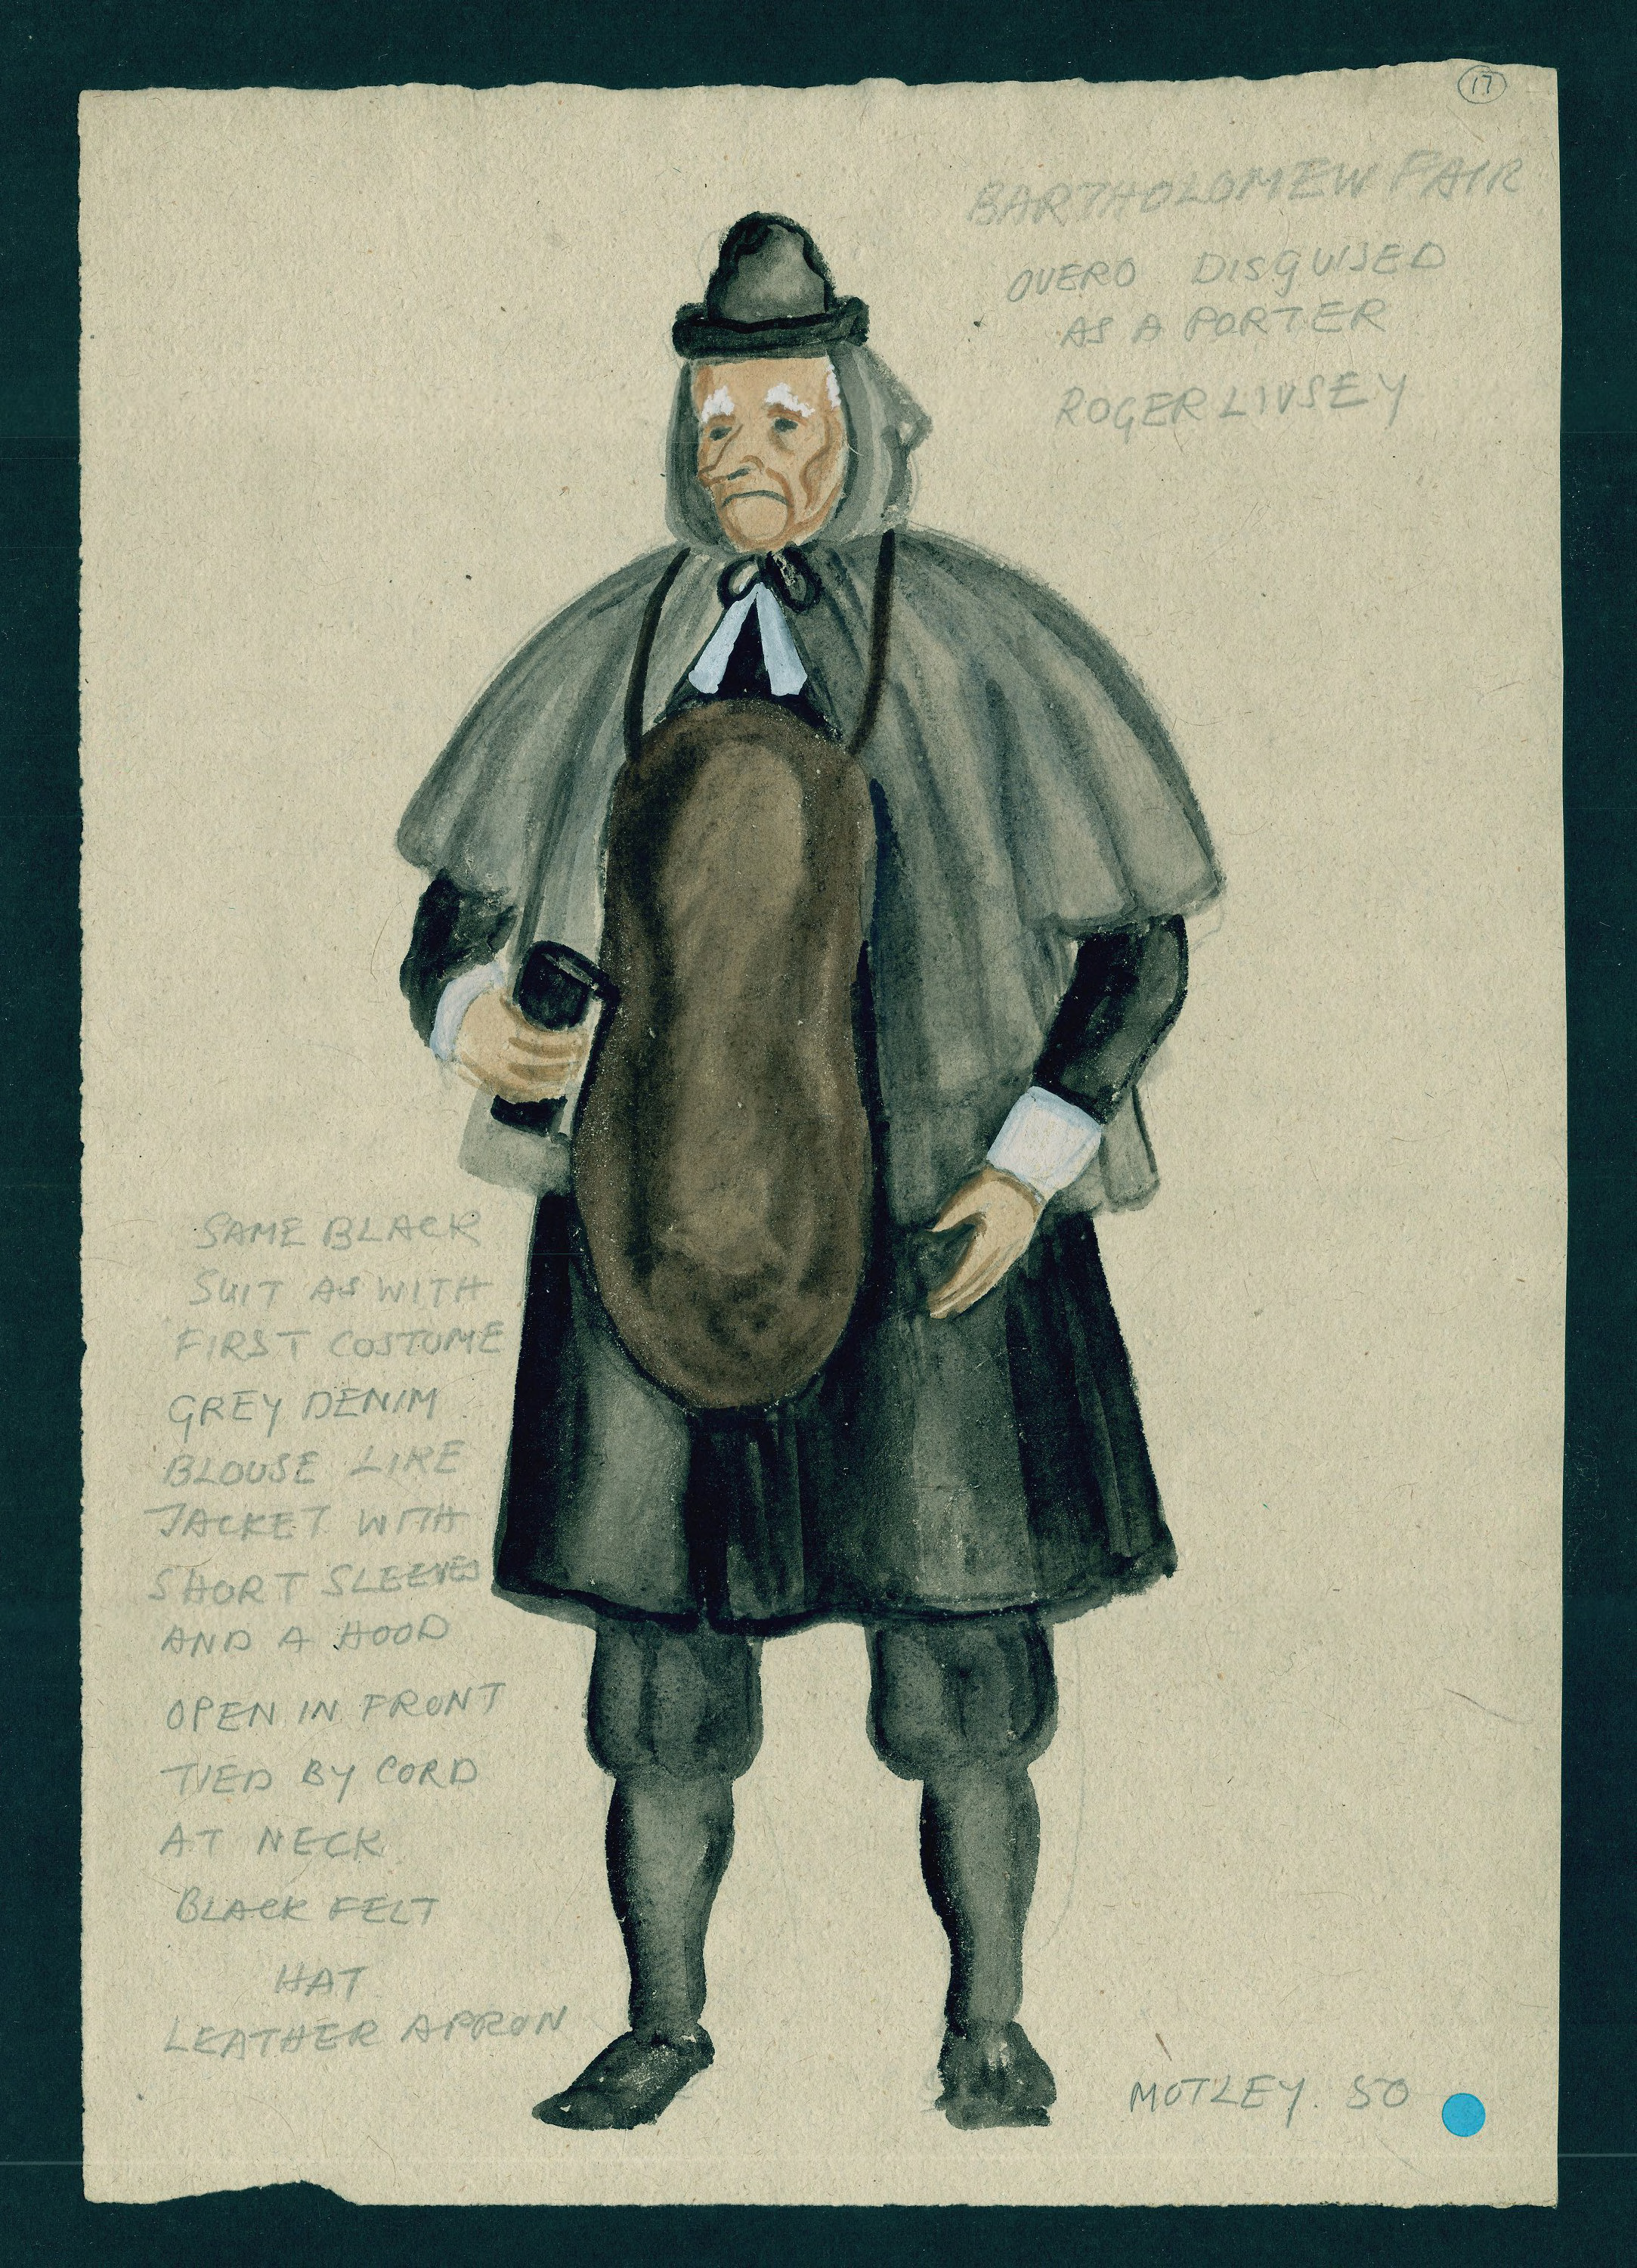 17
BARTHOLOMEW FAIR
OVERO DISGUISED
AS A PORTER
ROGER LIVSEY
SAME BLACK
SUIT AS WITH
FIRST COSTUME
GREY DENIM
BLOUSE LIKE
JACKET WITH
SHORT SLEEVES
AND A HOOD
OPEN IN FRONT
TIED BY CORD
AT NECK
BLACK FELT
HAT
LEATHER APRON
MOTLEY. 50